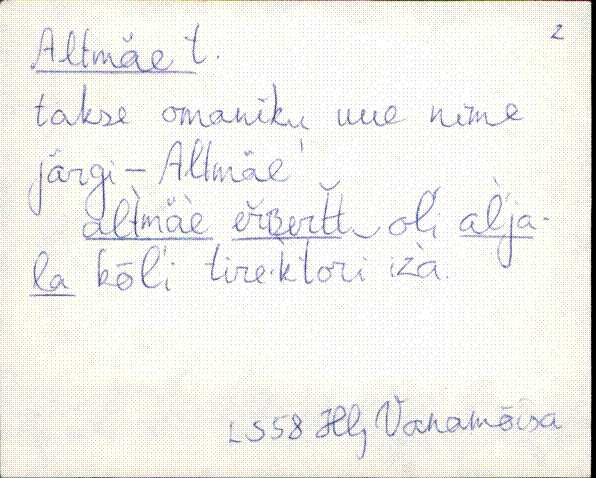 2
Altmäe t.
takse omaniku uue nime
järgi – Altmäe!
al̀tmäè er̆ʙer̆tt oĺi aĺja-
la kōĺi tirek̀tori izà.
LS58 Hlj Vanamõisa